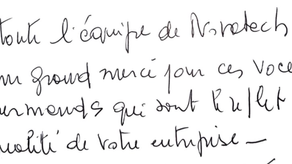 toute l'équipe de Novatech
un grand merci pour ces voce
urmands qui sont le reflet
ualité de votre entreprise —